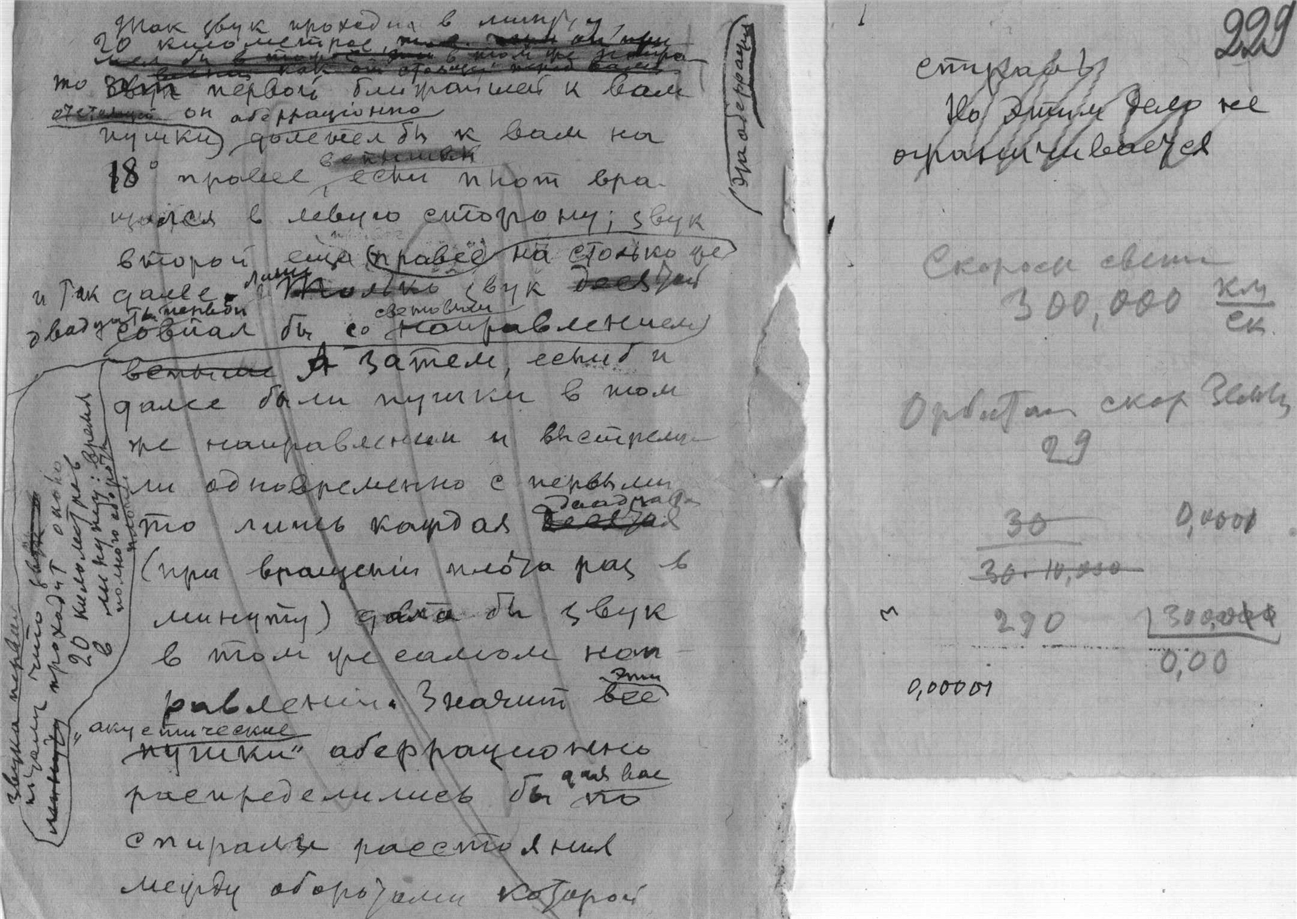 Так звук проходит в минуту
20 километров,
то звук первой ближайшей к вам
он аберрационно
пушки) долетел бы к вам на
18° правее, если плот вра-
щается в левую сторону; звук
второй еще (правее на столько же
и так далее. И лишь только звук десятой
двадцать первой
совпал бы со световым направлением)
вспыши А затем, если б и
далее были пушки в том
же направлении и выстрели-
ли одновременно с первыми
то лишь каждая двадцатая десятая
(при вращении плота раз в
минуту) дала бы звук
в том же самом нап-
равлении. Значит все эти
"акустические
пушки" аберрационно
распределились бы для вас по
спирали расстояния
между оборотами которой
звука первые
что звук
проходит около
20 километров
в минуту: время
полного оборота
плота
Эра аберрации
229
спираль
Но этим дело не
ограничивается
Скорость света
300,000 км/ск.
Орбитал скор Земли
29
30 0,0001
30·10,000
290 300,000
0,00
0,00001